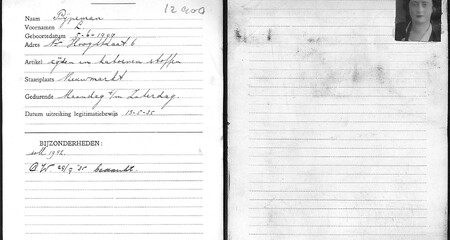 12900
Naam Pijpeman
Voornamen L.
Geboortedatum 5-6-1909
Adres Hoogstraat 6
Artikel zijden en katoenen stoffen
Staanplaats Nieuwmarkt
Gedurende Maandag t/m Zaterdag.
Datum uitreiking legitimatiebewijs 13-5-35
BIJZONDERHEDEN:
1942.